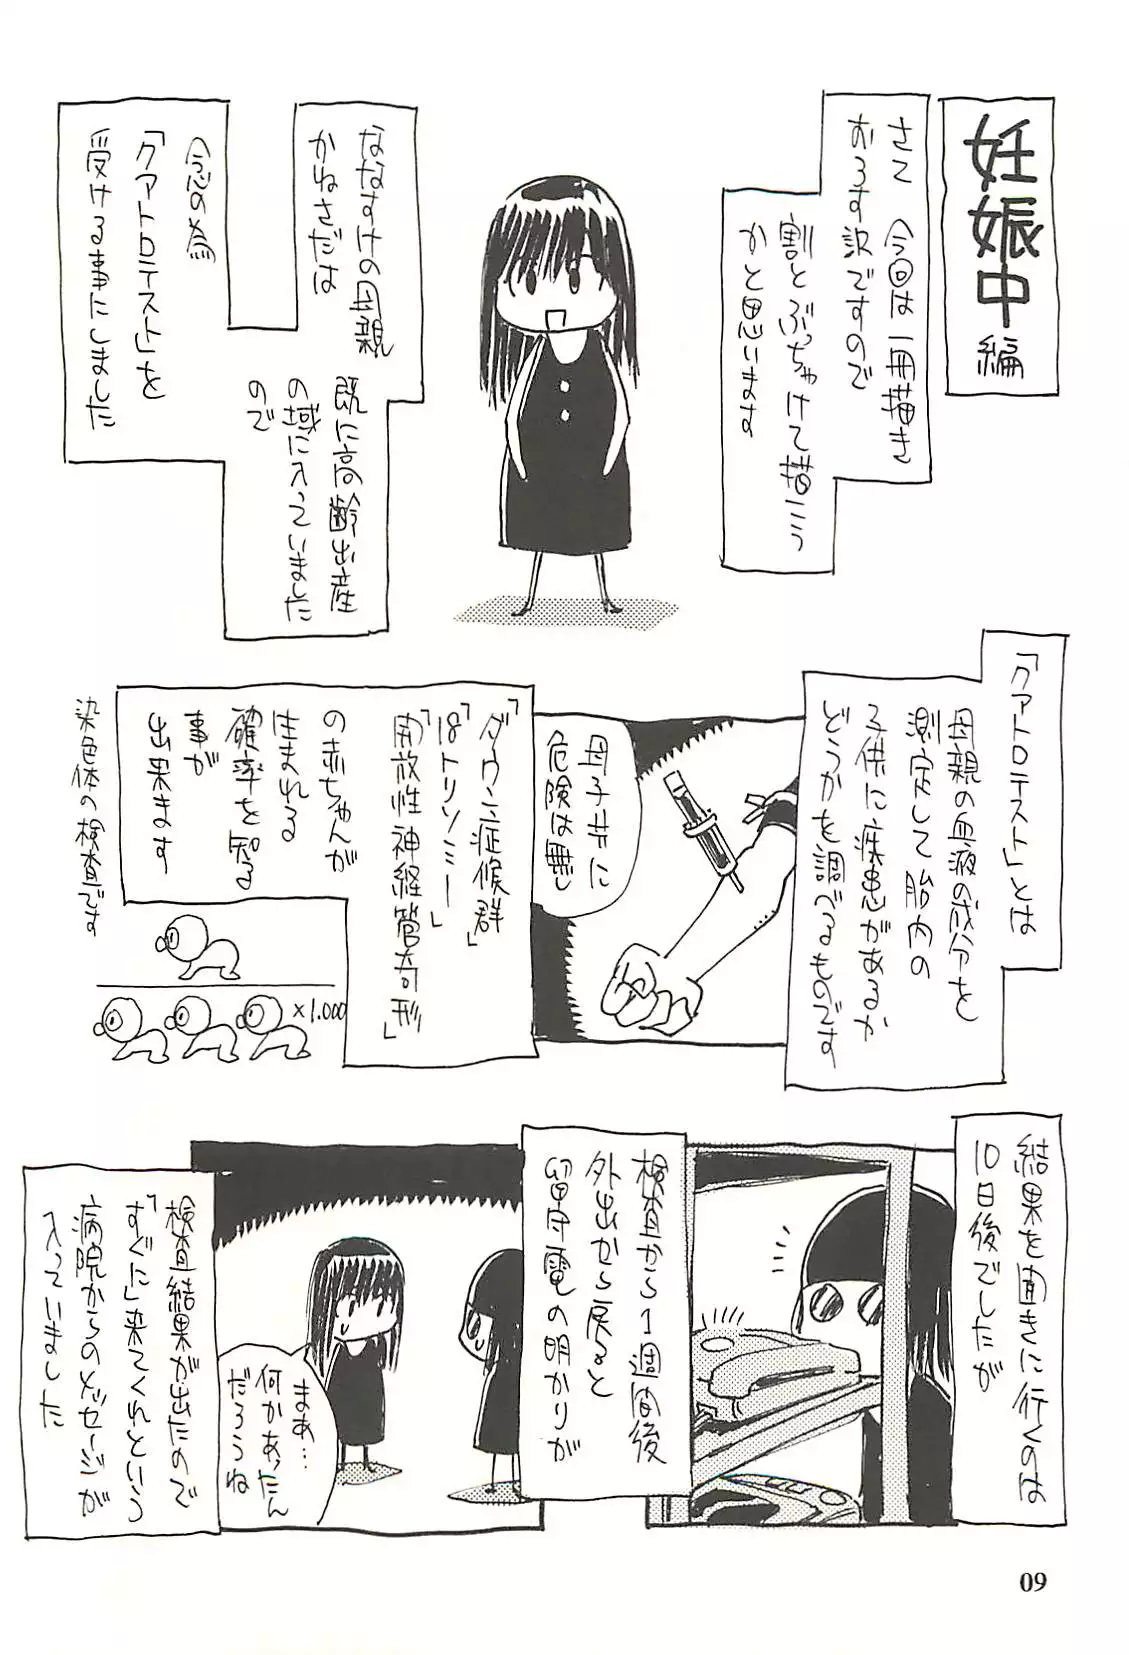 妊娠中
編
さて 今回は一冊描き
おろす訳ですので
割とぶっちゃけて描こう
かと思います
ななすけの母親
かねさだは
既に高齢出産
の域に入っていました
ので
念の為
「クアトロテスト」を
受ける事にしました
「クアトロテスト」とは
母親の血液の成分を
測定して胎内の
子供に疾患があるか
どうかを調べるものです
母子共に
危険は無し
「ダウン症候群」
「18トリソミー」
「開放性神経管奇形」
の赤ちゃんが
生まれる
確率を知る
事が
出来ます
染色体の検査です
×1.000
結果を聞きに行くのは
10日後でしたが
検査から1週間後
外出から戻ると
留守電の明かりが
まあ…
何かあったん
だろうね
検査結果が出たので
「すぐに」来てくれという
病院からのメッセージが
入っていました
09